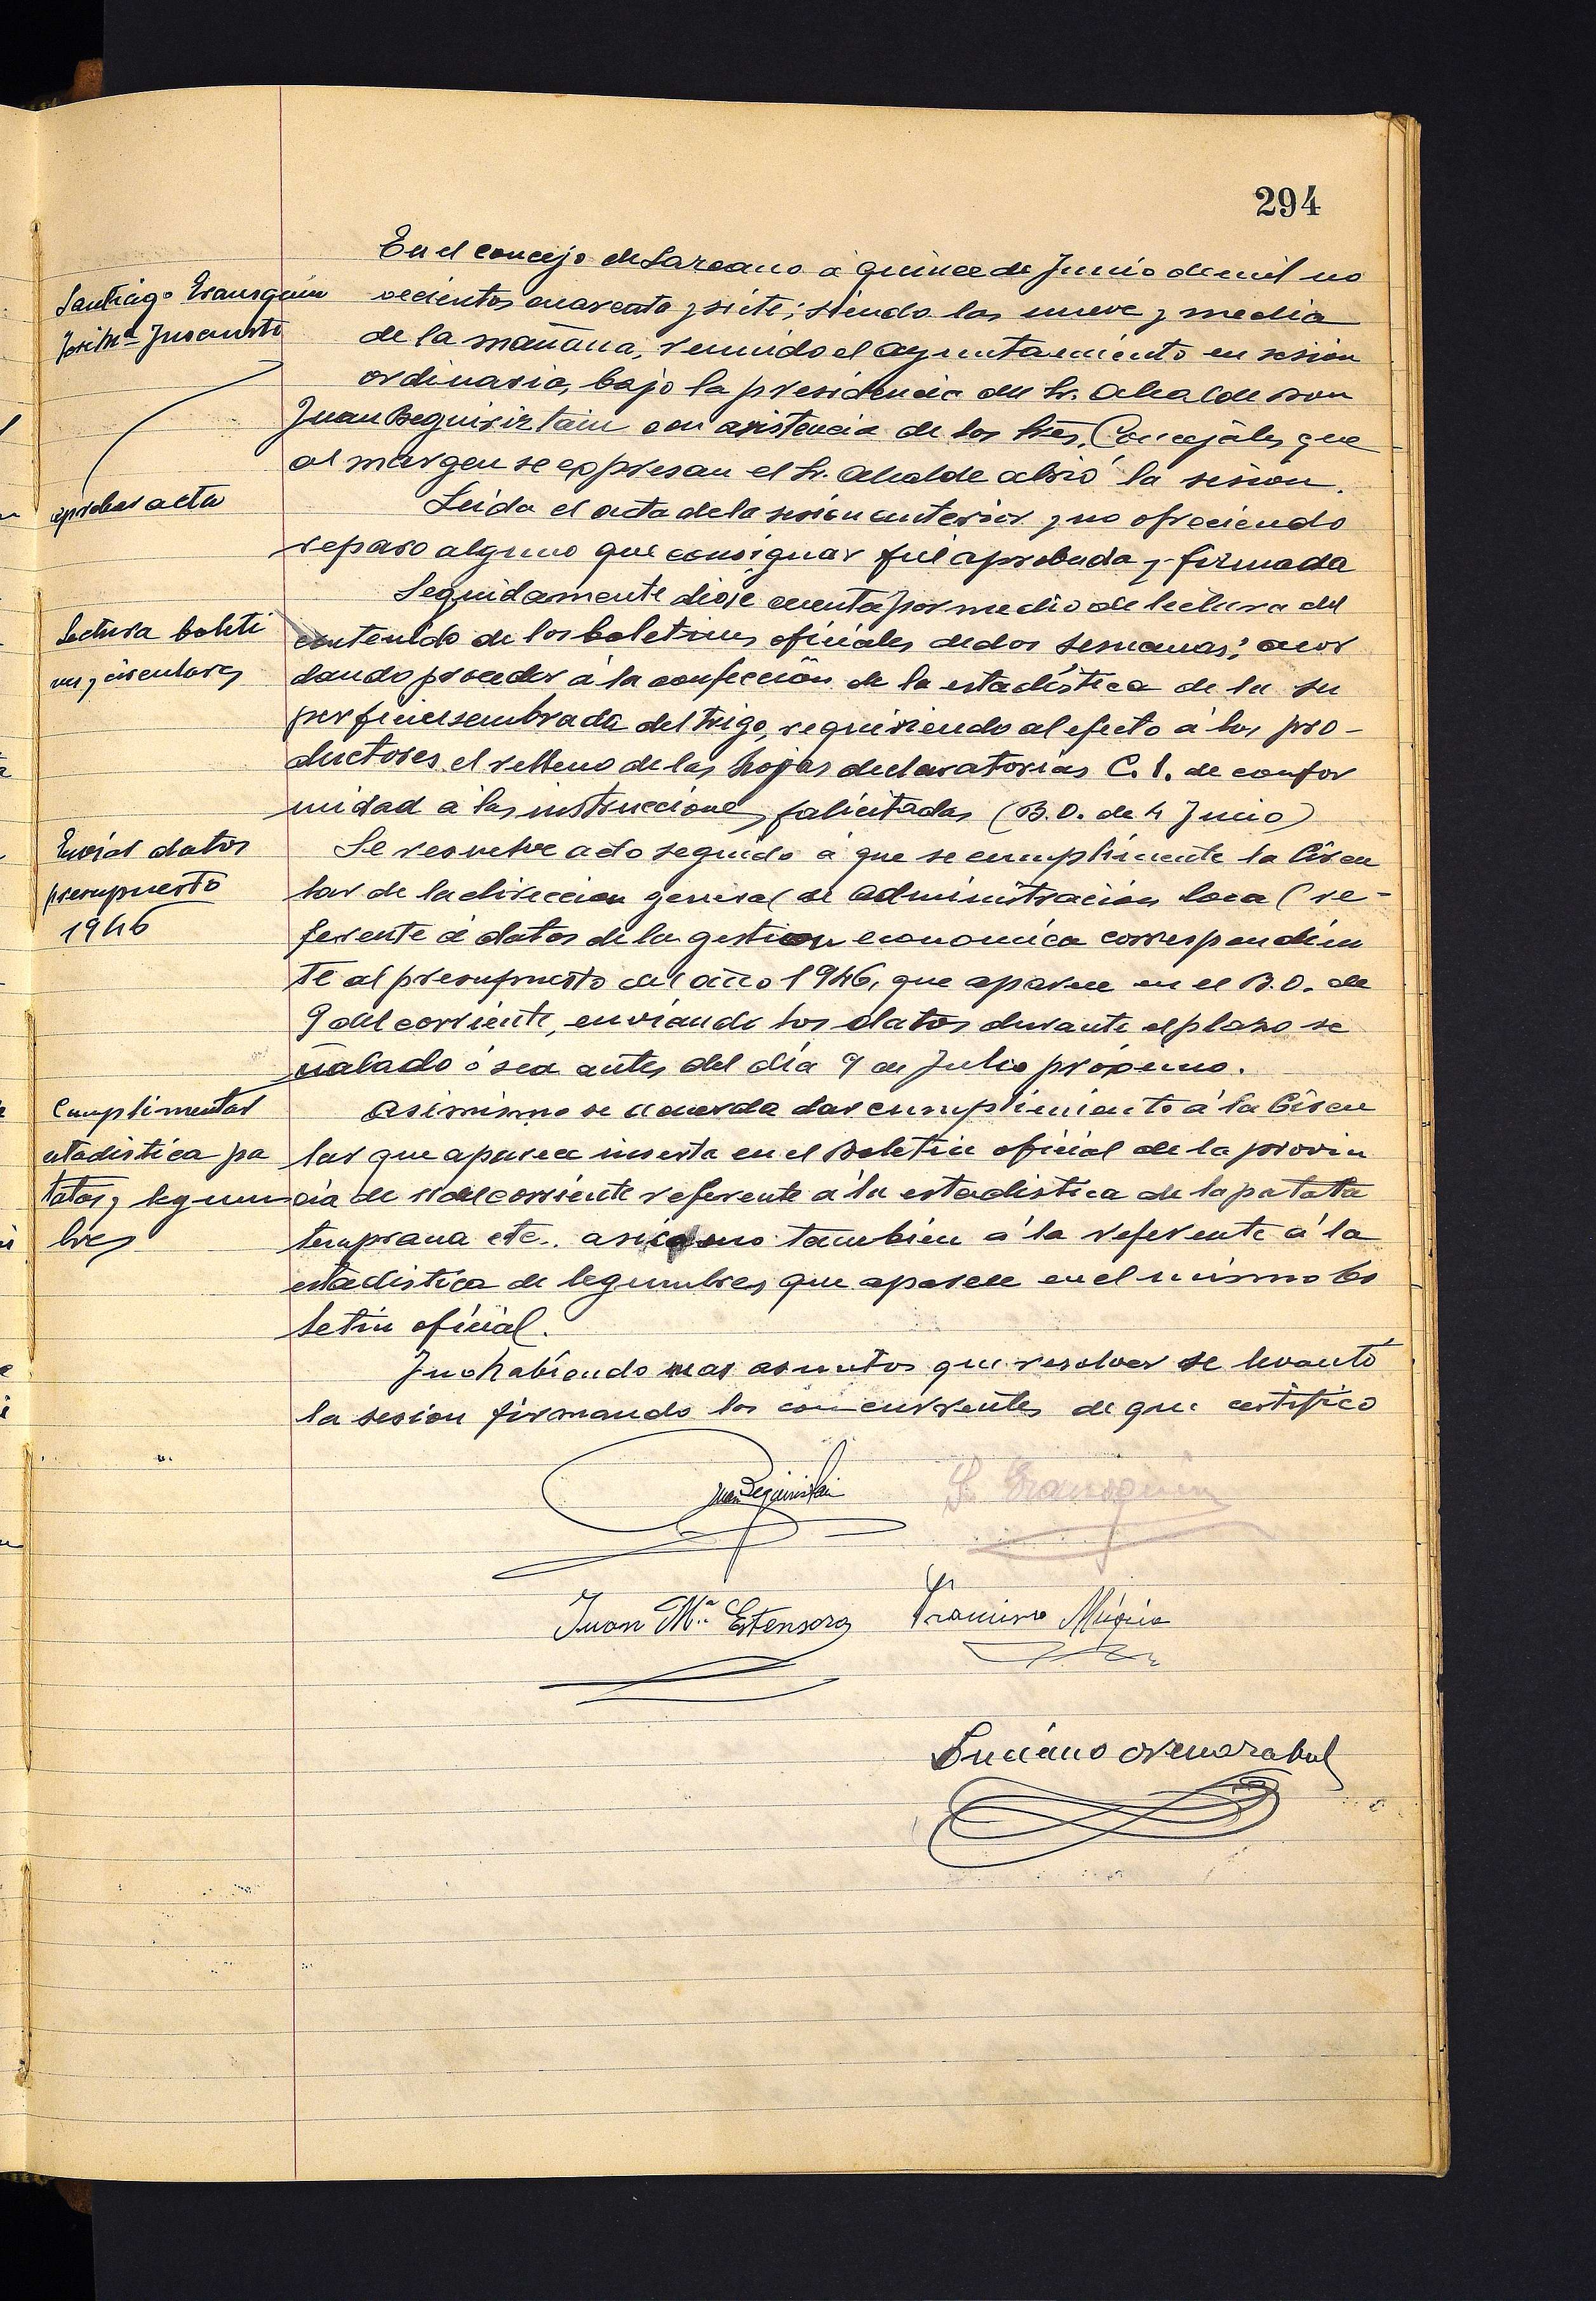 294
En el concejo de Lazcano a quince de Junio de mil no
Santiago Erausquin
vecientos cuarenta y siete; siendo las nueve y media
José Mª
de la mañana, reunido el ayuntamiento en sesion
ordinaria, bajo la presidencia del Sr. Alcalde Don
Juan Beguiristain con asistencia de los Sres. Concejales que
al margen se expresan el Sr. Alcalde abrió la sesion.
aprobar acta
Leida el acta de la sesion anterior y no ofreciendo
reparo alguno que consignar fué aprobada y firmada
Seguidamente diose cuenta por medio de lectura del
Lectura boleti
contenido de los boletines oficiales de dos semanas; acor
nes y circulares
dando proceder á la confección de la estadística de la su
perficie sembrada del trigo, requiriendo al efecto á los pro-
ductores el relleno de las hojas declaratorias C. 1. de confor
midad á las instrucciones falicitadas (B.O. de 4 Junio)
Enviar datos
Se resuelve acto seguido a que se cumplimente la Circu
presupuesto
lar de la direccion general de administracion local re-
1946
ferente á datos de la gestion economica correspondien
te al presupuesto del año 1946, que aparece en el B.O. de
9 del corriente, enviando los datos durante el plazo se
ñalado ó sea antes del día 9 de Julio próximo.
Cumplimentar
Asimismo se acuerda dar cumplimiento á la Circu
estadistica pa
lar que aparece inserta en el Boletin oficial de la provin
tatas y legum
cia de 11 del corriente referente á la estadistica de la patata
bres
temprana etc. asi como tambien á la referente á la
estadistica de legumbres que aparece en el mismo bo
letin oficial.
Y no habiendo mas asuntos que resolver se levantó
la sesion firmando los concurrentes de que certifico
Juan Beguiristain
S. Erausquin
Juan Mª Estensoro
Francisco Múgica
Luciano